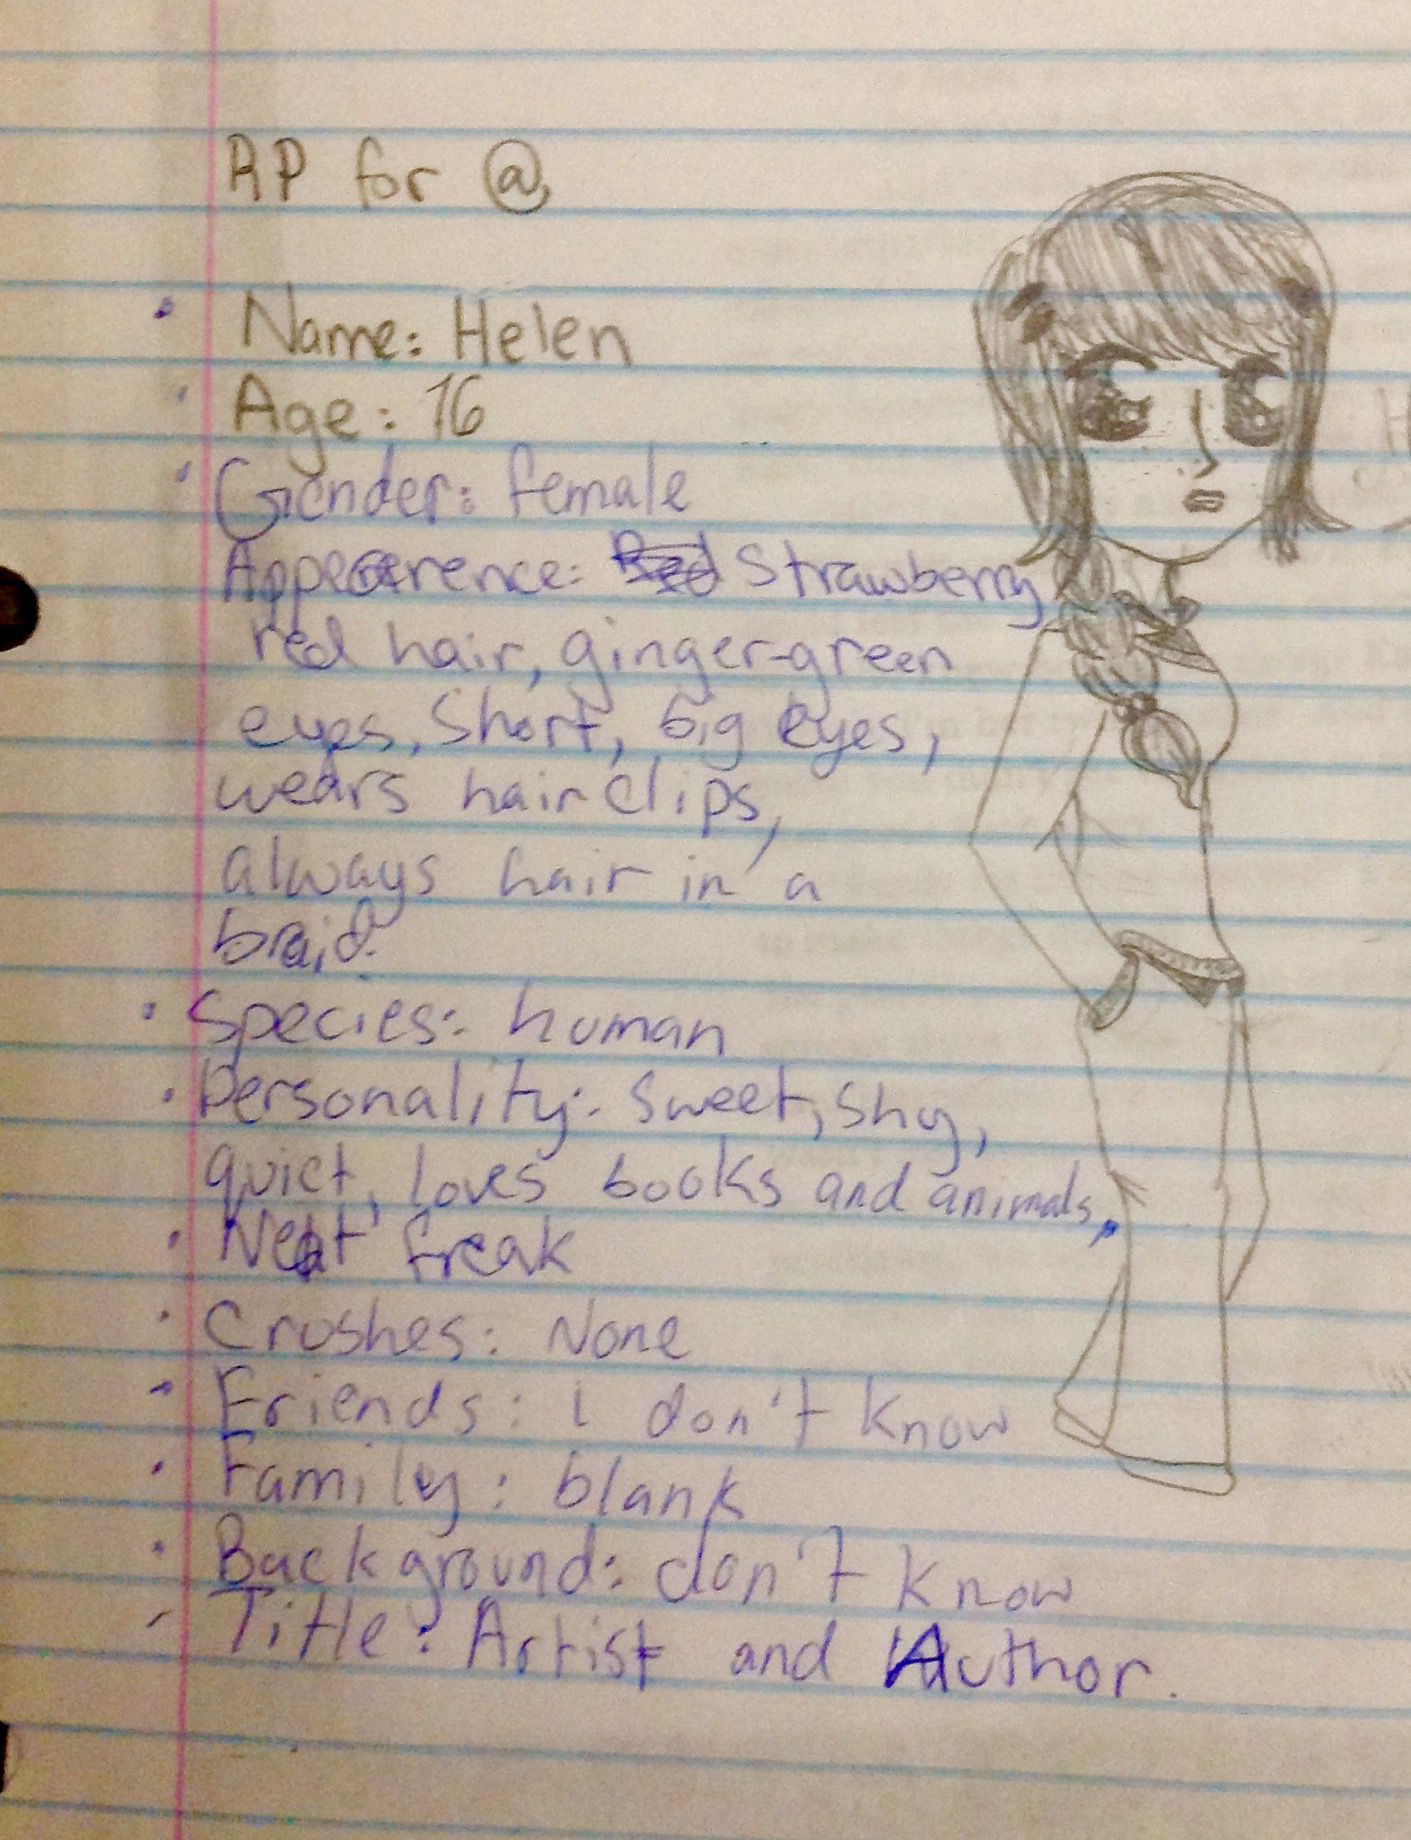 RP for @
• Name: Helen
• Age: 16
• Gender: female
Appearence: Red Strawberry
red hair, ginger-green
eyes, Short, big eyes,
wears hair clips,
always hair in a
braid.
• Species: human
• Personality: Sweet, Shy,
quiet, loves books and animals,
• Neat freak
• Crushes: None
• Friends: i don't know
• Family: blank
• Background: don't know
- Title: Artist and Author.